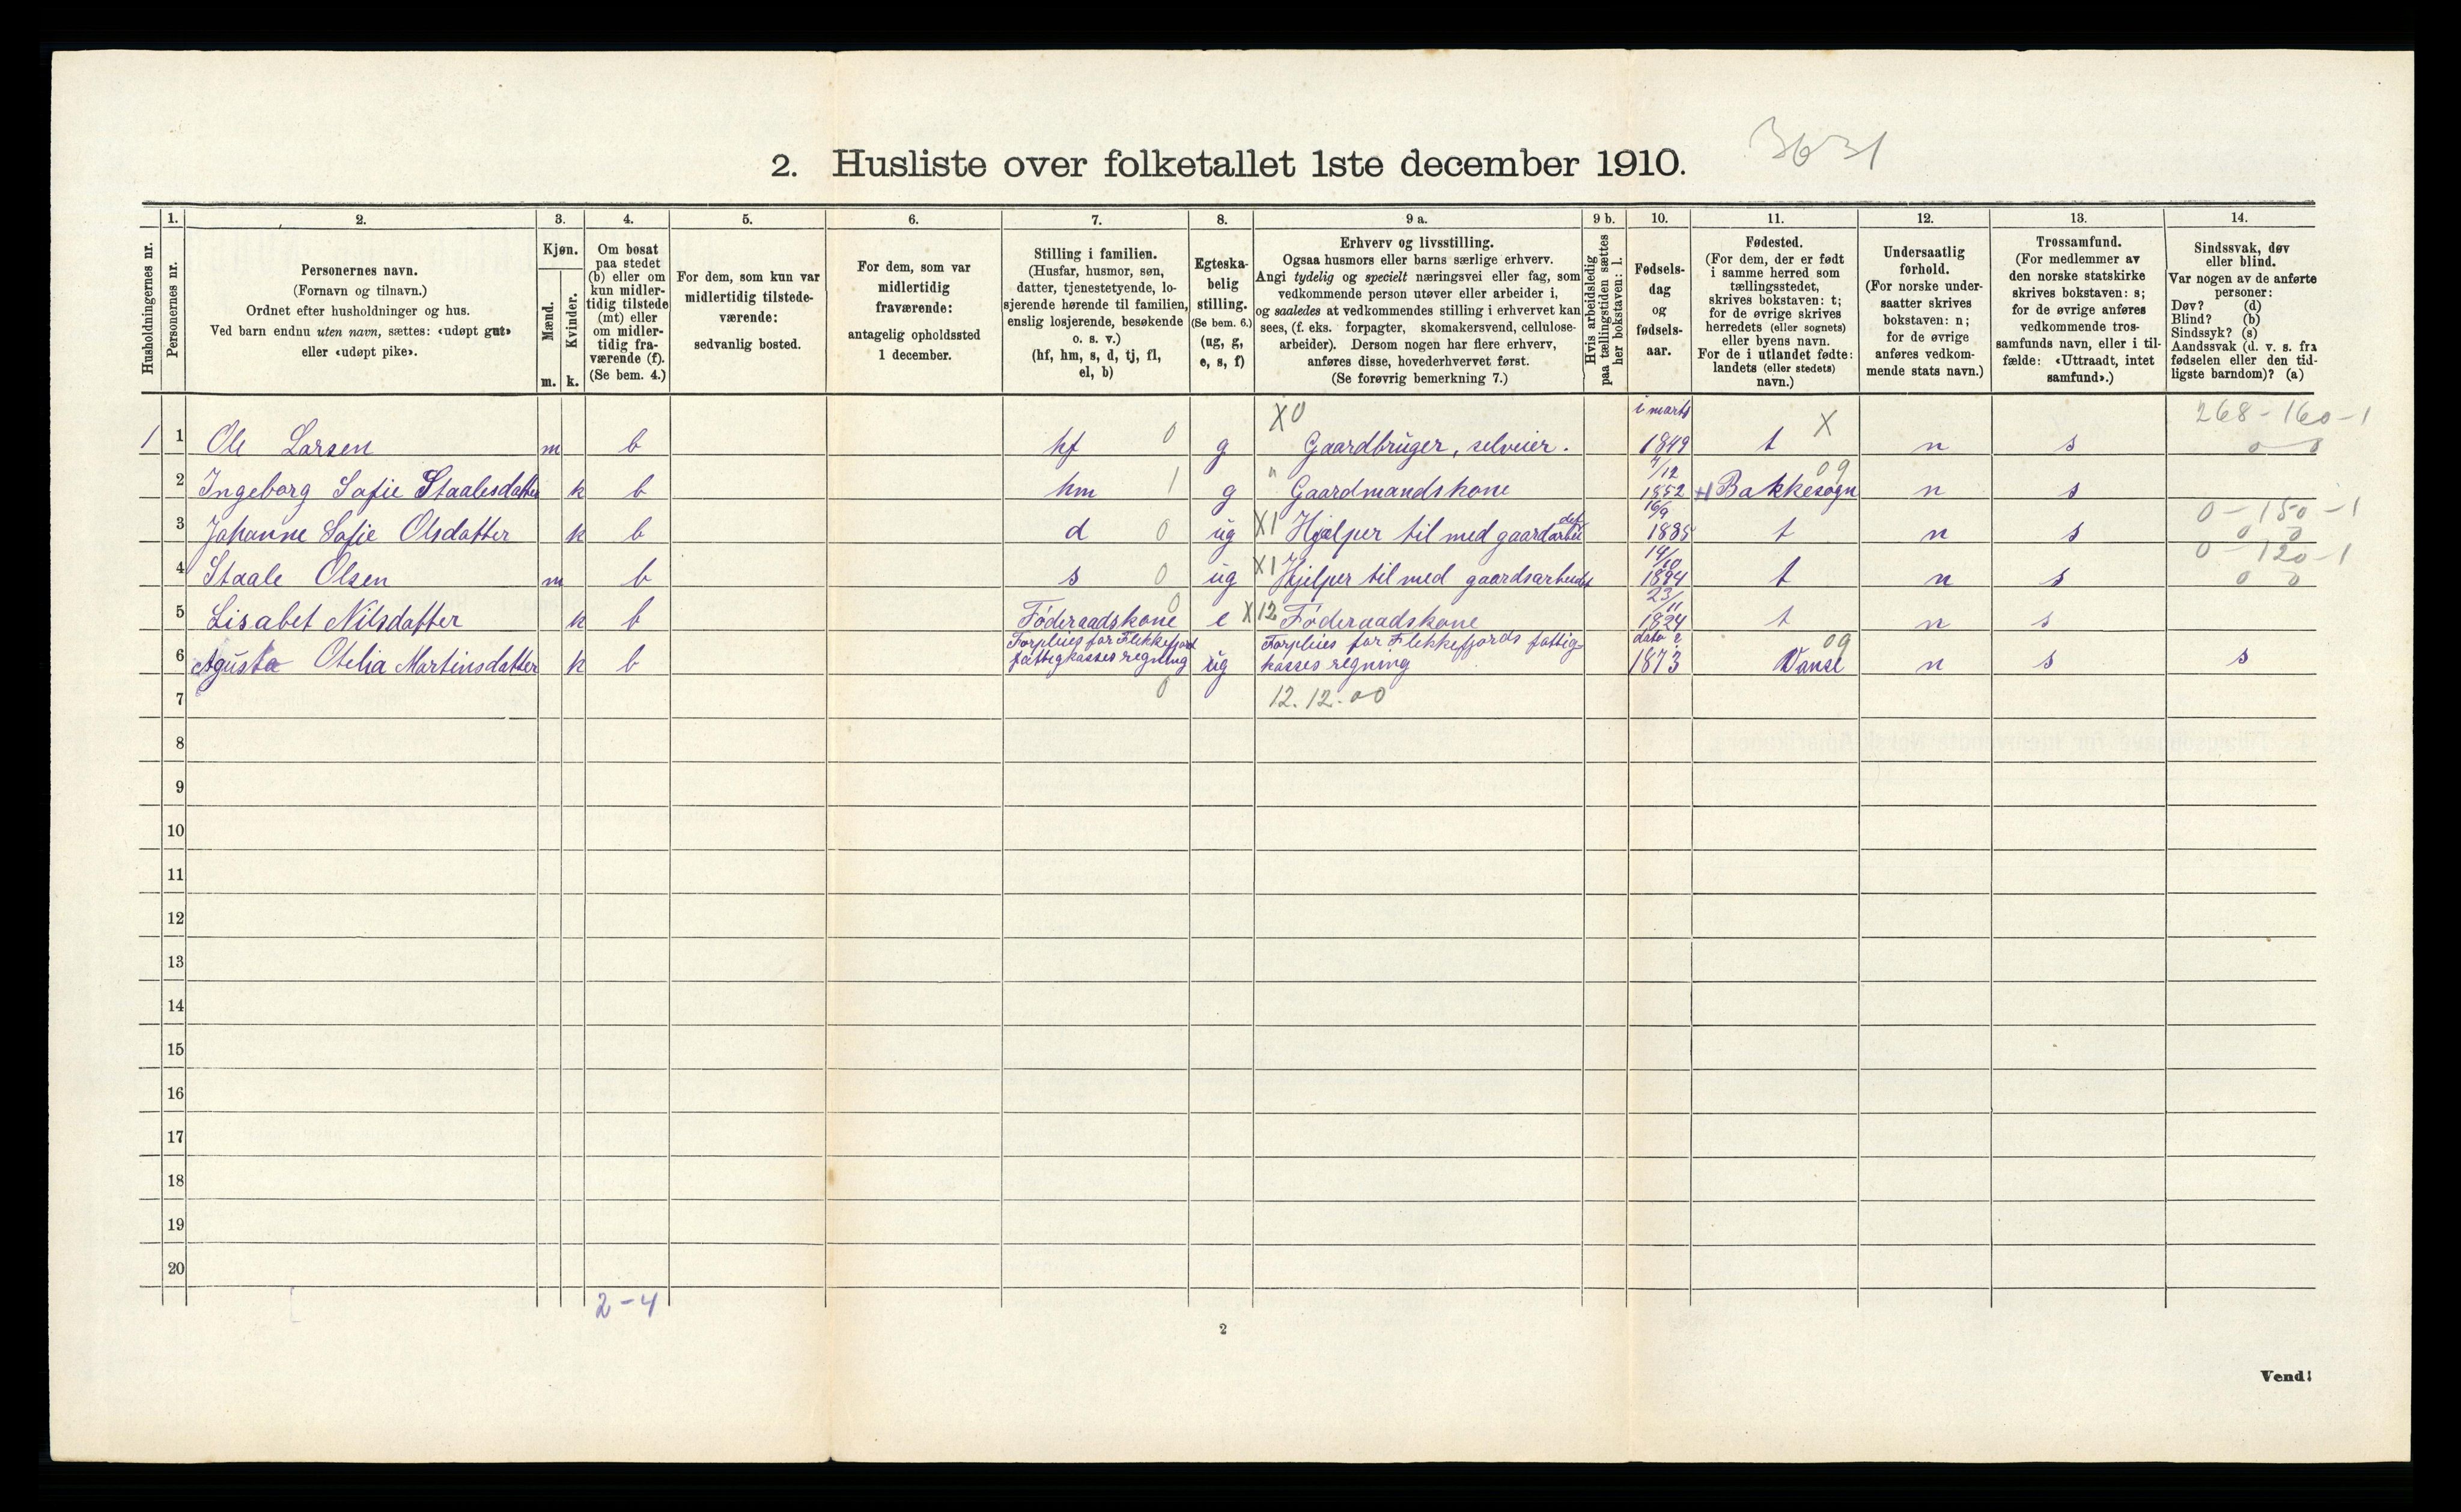 2. Husliste over folketallet 1ste december 1910. 3631
1. 2. 3. 4. 5. 6. 7. 8. 9 a. 9 b. 10. 11. 12. 13. 14.
Husholdningernes nr.
Personernes nr.
Personernes navn.
(Fornavn og tilnavn.)
Ordnet efter husholdninger og hus.
Ved barn endnu uten navn, sættes: «udøpt gut»
eller «udøpt pike».
Kjøn.
Mænd.
Kvinder.
m. k.
Om bosat
paa stedet
(b) eller om
kun midler-
tidig tilstede
(mt) eller
om midler-
tidig fra-
værende (f).
(Se bem. 4.)
For dem, som kun var
midlertidig tilstede-
værende:
sedvanlig bosted.
For dem, som var
midlertidig
fraværende:
antagelig opholdssted
1 december.
Stilling i familien.
(Husfar, husmor, søn,
datter, tjenestetyende, lo-
sjerende hørende til familien,
enslig losjerende, besøkende
o. s. v.)
(hf, hm, s, d, tj, fl,
el, b)
Egteska-
belig
stilling.
(Se bem. 6.)
(ug, g,
e, s, f)
Erhverv og livsstilling.
Ogsaa husmors eller barns særlige erhverv.
Angi tydelig og specielt næringsvei eller fag, som
vedkommende person utøver eller arbeider i,
og saaledes at vedkommendes stilling i erhvervet kan
sees, (f. eks. forpagter, skomakersvend, cellulose-
arbeider). Dersom nogen har flere erhverv,
anføres disse, hovederhvervet først.
(Se forøvrig bemerkning 7.)
Hvis arbeidsledig
paa tællingstiden sættes
her bokstaven: l.
Fødsels-
dag
og
fødsels-
aar.
Fødested.
(For dem, der er født
i samme herred som
tællingsstedet,
skrives bokstaven: t;
for de øvrige skrives
herredets (eller sognets)
eller byens navn.
For de i utlandet fødte:
landets (eller stedets)
navn.)
Undersaatlig
forhold.
(For norske under-
saatter skrives
bokstaven: n;
for de øvrige
anføres vedkom-
mende stats navn.)
Trossamfund.
(For medlemmer av
den norske statskirke
skrives bokstaven: s;
for de øvrige anføres
vedkommende tros-
samfunds navn, eller i til-
fælde: «Uttraadt, intet
samfund».)
Sindssvak, døv
eller blind.
Var nogen av de anførte
personer:
Døv? (d)
Blind? (b)
Sindssyk? (s)
Aandssvak (d. v. s. fra
fødselen eller den tid-
ligste barndom)? (a)
X0 i marts X 268-160-1
1 1 Ole Larsen m b hf 0 g Gaardbruger, selveier. 1849 t n s 0 0
" 4/12 09
2 Ingeborg Sofie Staalesdatter k b hm 1 g Gaardmandskone 1852 Bakkesogn n s
16/9 0-150-1
3 Johanne Sofie Olsdatter k b d 0 ug X1 Hjælper til med gaardarbeidet 1885 t n s 0 0
14/10 0-120-1
4 Staale Olsen m b s 0 ug X1 Hjelper til med gaardsarbeidet 1894 t n s 0 0
0 23/11
5 Lisabet Nilsdatter k b Føderaadskone e X12 Føderaadskone 1824 t n s
Forpleies for Flekkefjord Forpleies for Flekkefjords fattig- dato ? 09
6 Agusta Otelia Martinsdatter k b fattigkasses regning ug kasses regning 1873 Vanse n s s
7 0 12.12.00
8
9
10
11
12
13
14
15
16
17
18
19
20
2-4
2
Vend!